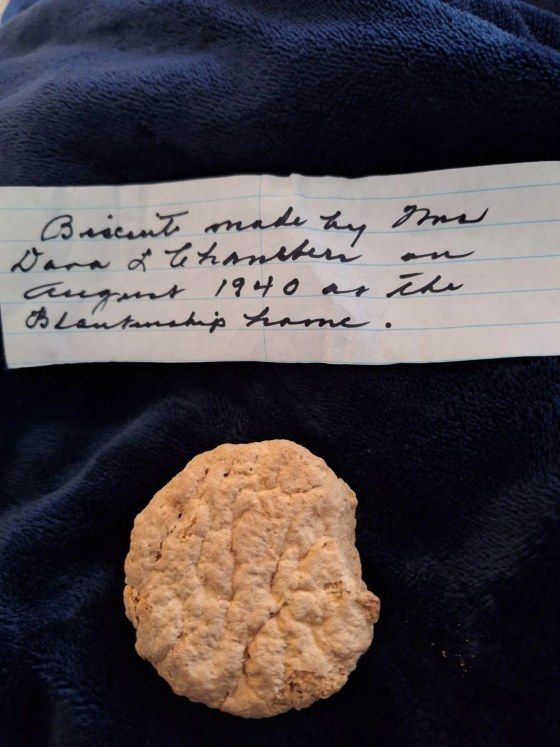 Biscuits made by Mrs
Dora L Chambers on
August 1940 at the
Blankenship home.